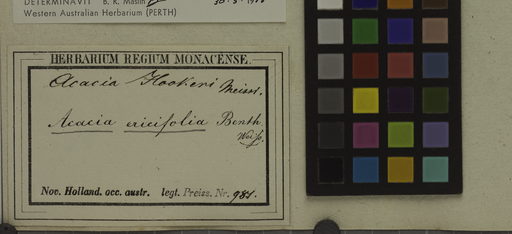 DETERMINAVIT B. R. Maslin
Western Australian Herbarium (PERTH)
HERBARIUM REGIUM MONACENSE.
Acacia Hookeri Meissn.
Acacia ericifolia Benth.
Nov. Holland. occ. austr. legt. Preiss. Nr. 981.